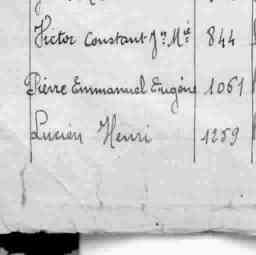 Victor Constant Jn Mie 844
Pierre Emmanuel Eugène 1061
Lucien Henri 1259